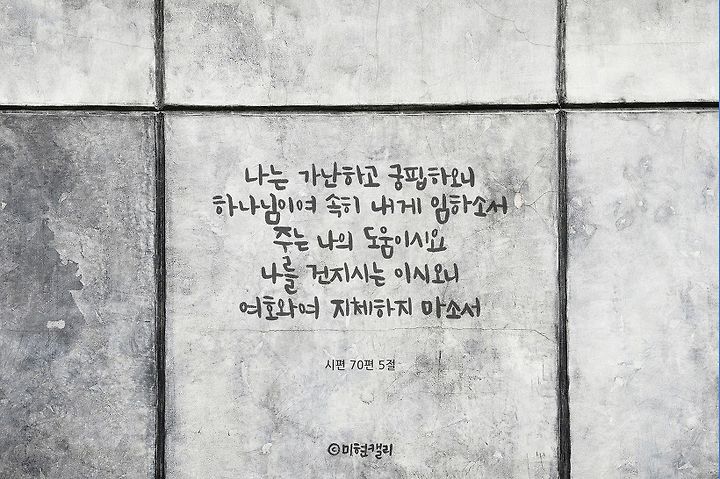 나는 가난하고 궁핍하오니
하나님이여 속히 내게 임하소서
주는 나의 도움이시요
나를 건지시는 이시오니
여호와여 지체하지 마소서
시편 70편 5절
©미현캘리